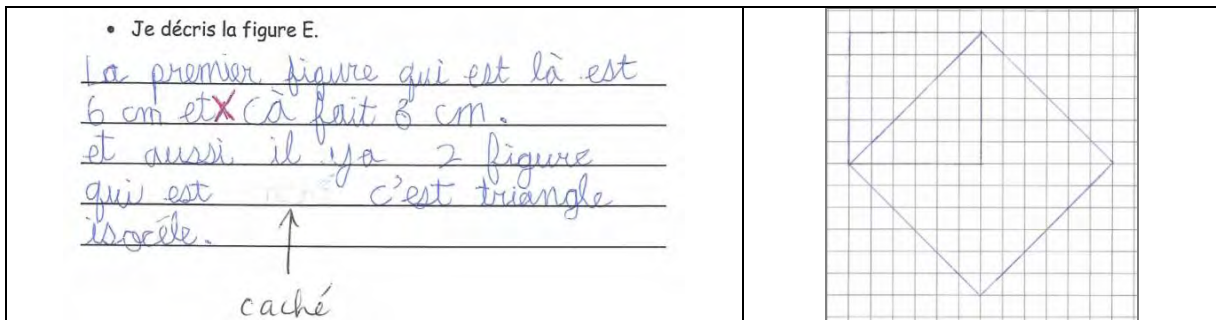 • Je décris la figure E.
La premier figure qui est là est
6 cm et X Cà fait 3 cm.
et aussi il ya 2 figure
qui est c'est triangle
isocèle.
caché